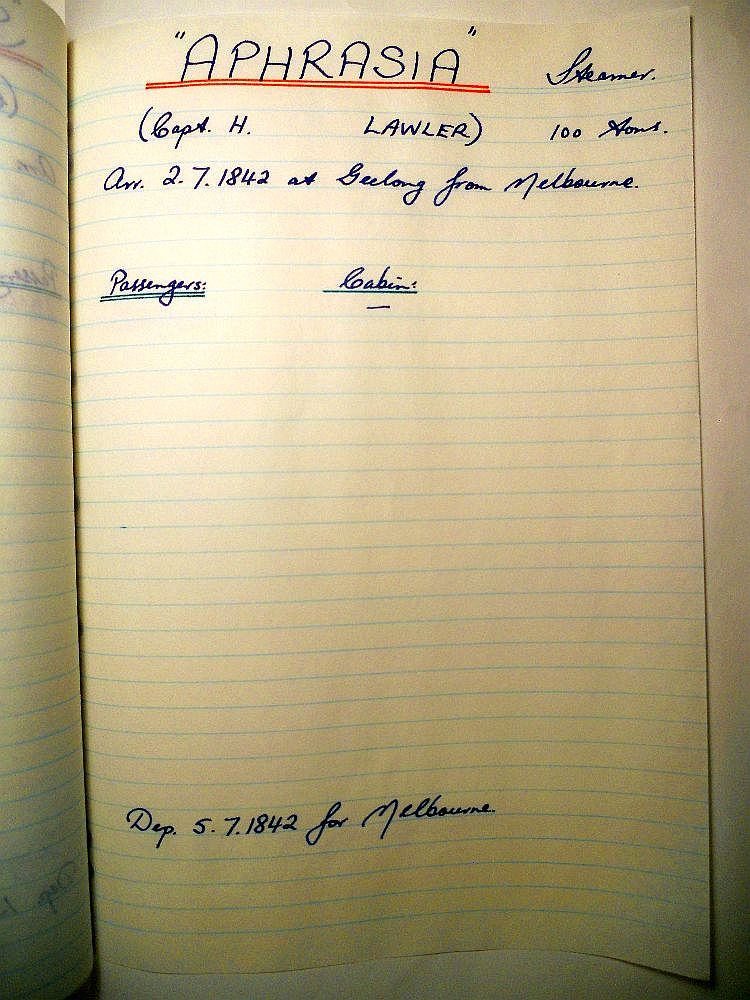 "APHRASIA" Steamer.
(Capt. H. LAWLER) 100 tons.
Arr. 2.7.1842 at Geelong from Melbourne.
Passengers: Cabin:
—
Dep. 5.7.1842 for Melbourne.